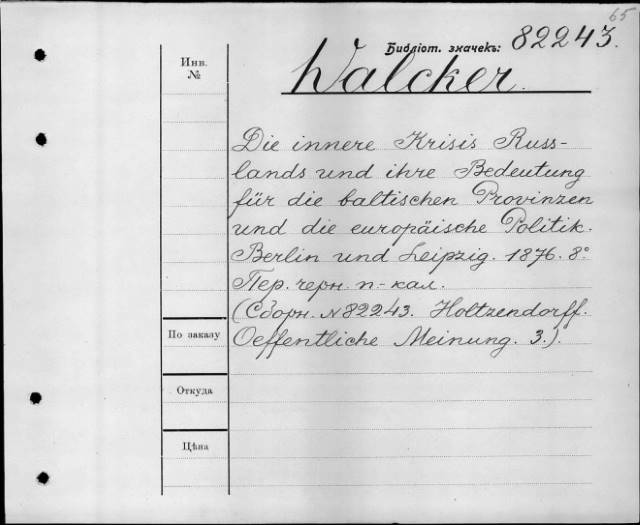 65
Библіот. значекъ: 82243.
Инв.
№
Walcker.
Die innere Krisis Russ-
lands und ihre Bedeutung
für die baltischen Provinzen
und die europäische Politik.
Berlin und Leipzig. 1876. 8°
Пер. черн. п-кал.
(Сборн. №82243. Holtzendorff.
По заказу
Oeffentliche Meinung. 3.).
Откуда
Цѣна